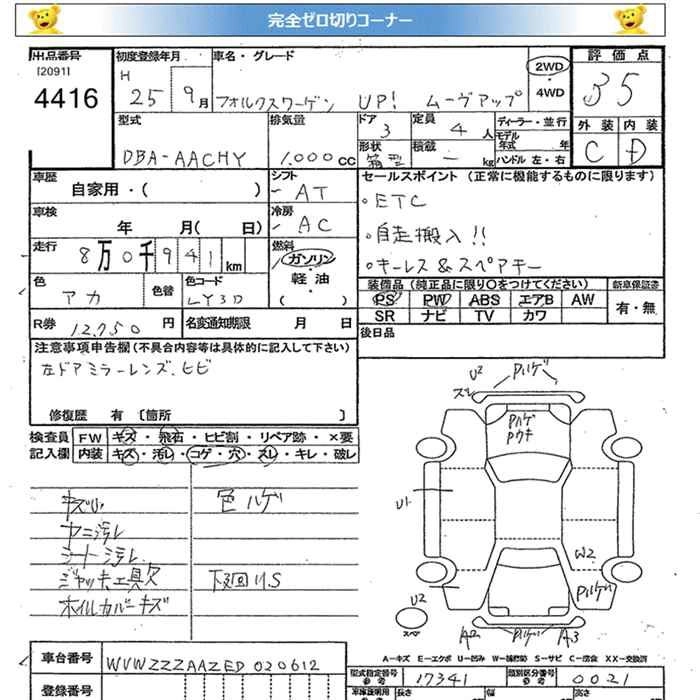 完全ゼロ切りコーナー
出品番号
[2091]
4416
初度登録年月
H 25 9月
車名・グレード
フォルクスワーゲン UP! ムーヴアップ
2WD
・
4WD
評価点
35
外装 内装
C D
型式
DBA-AACHY
排気量
1.000cc
ドア
3
定員
4人
形状
箱型
積載
— kg
ディーラー・並行
モデル年式 年
ハンドル 左・右
車歴
自家用・( )
シフト
AT
車検
年 月( 日)
冷房
AC
走行
8万0千941km
燃料
ガソリン
・
軽油
・
( )
色
アカ
色替
色コード
LY3D
R券 12,750円
名変通知期限 月 日
セールスポイント (正常に機能するものに限ります)
。ETC
。自走搬入!!
。キーレス&スペアキー
装備品(純正品に限り○をつけてください)
新車保証書
PS PW ABS エアB AW
SR ナビ TV カワ
有・無
後日品
注意事項申告欄(不具合内容等は具体的に記入して下さい)
左ドアミラーレンズ、ヒビ
修復歴 有 〔箇所 〕
検査員記入欄
FW キズ・飛石・ヒビ割・リペア跡・×要
内装 キズ・汚レ・コゲ・穴・スレ・キレ・破レ
キズU
ヤニ汚レ
シート汚レ
ジャッキ工具欠
ホイルカバーキズ
色ハゲ
下廻りS
U2
スレ
Pハゲ
Pハゲ
Pウキ
U1
W2
Pハゲ
U2
スペア
A2
Pハゲ
A3
A—キズ E—エクボ U—凹み W—補修跡 S—サビ C—腐食 XX—交換済
車台番号
WVWZZZAAZED020612
登録番号
型式指定番号
参考
17341
類別区分番号
参考
0021
車庫証明用
長さ
幅
高さ